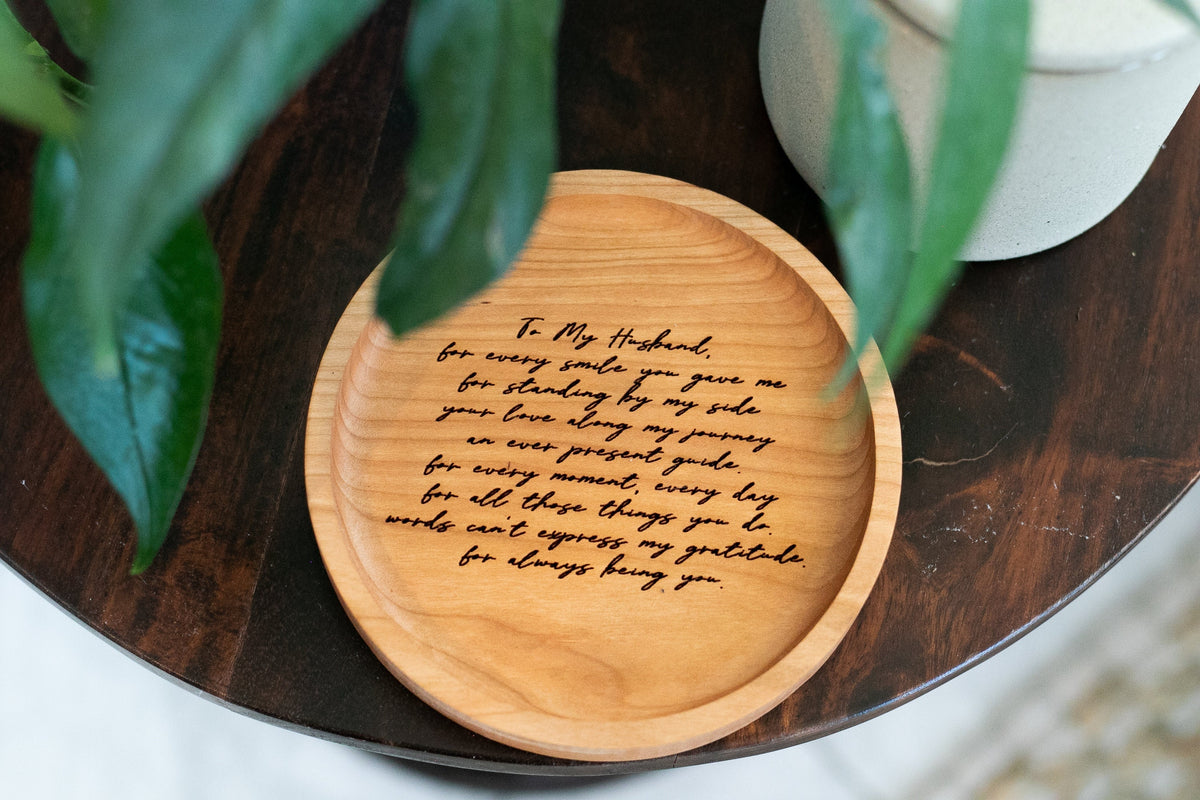 To My Husband,
for every smile you gave me
for standing by my side
your love along my journey
an ever present guide.
for every moment, every day
for all those things you do.
words can't express my gratitude.
for always being you.